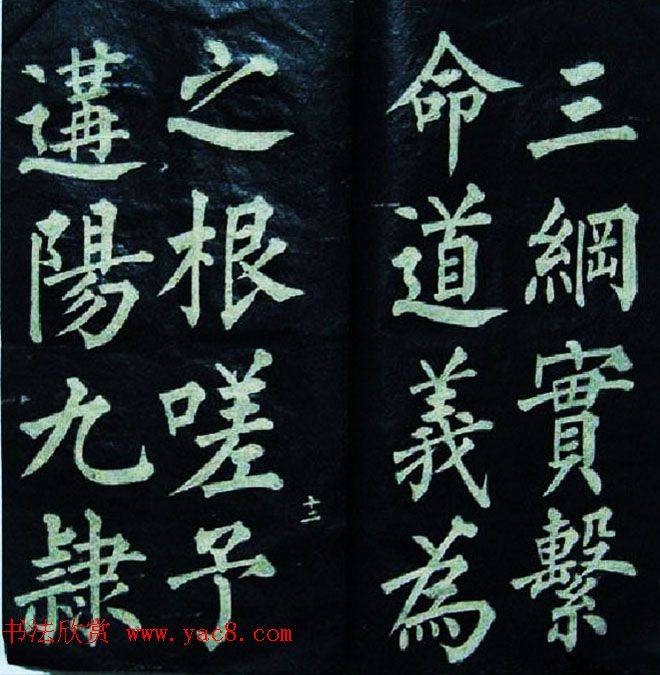 三綱實繫
命道義為
之根嗟予
遘陽九隸
十二
书法欣赏 www.yac8.com